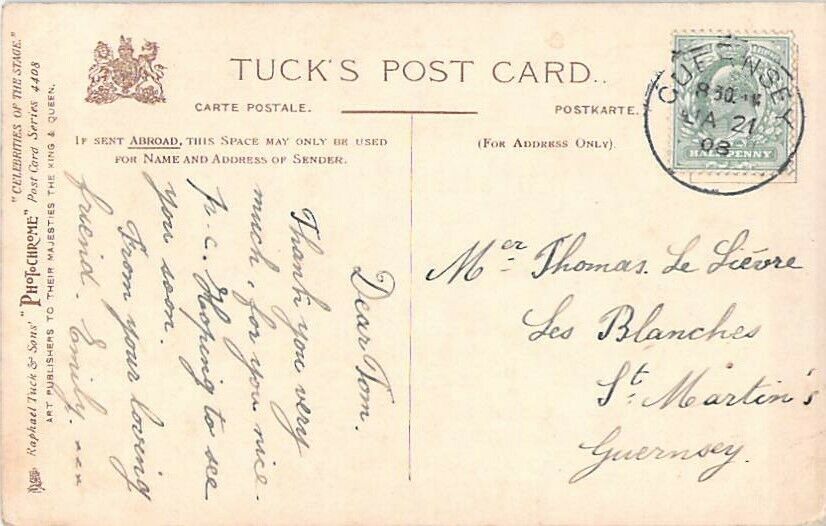 TUCK'S POST CARD..
CARTE POSTALE.
POSTKARTE.
IF SENT ABROAD, THIS SPACE MAY ONLY BE USED
FOR NAME AND ADDRESS OF SENDER.
(FOR ADDRESS ONLY).
GUERNSEY
8 30
JA 21
08
HALFPENNY
Dear Tom.
Thank you very
much, for you nice
p.c. Hoping to see
you soon.
From your loving
friend. Emily. xxx
Mer Thomas. Le Lièvre
Les Blanches
St. Martin's
Guernsey.
"CELEBRITIES OF THE STAGE."
Raphael Tuck & Sons' "PHOTOCHROME" Post Card Series 4408
ART PUBLISHERS TO THEIR MAJESTIES THE KING & QUEEN.